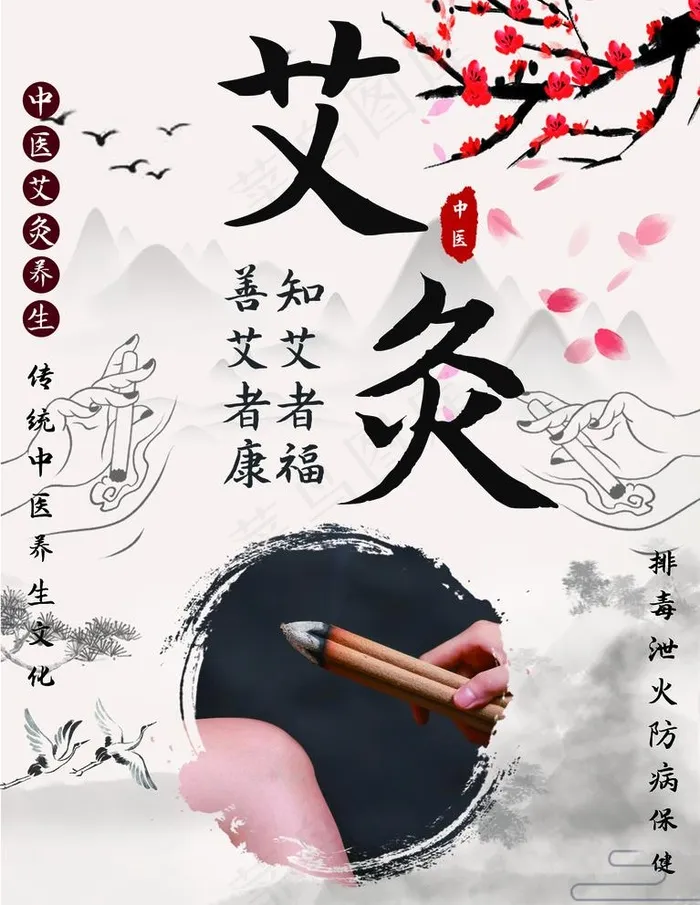 艾灸
中医
中医艾灸养生
传统中医养生文化
知艾者福
善艾者康
排毒泄火防病保健